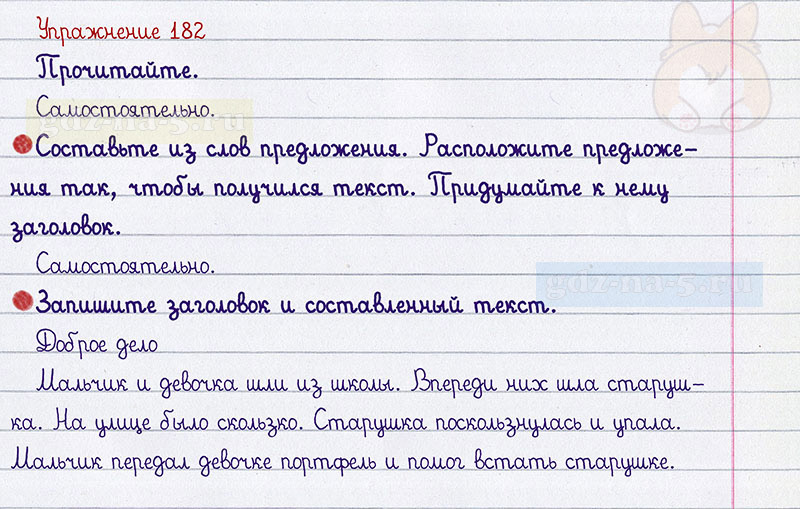 Упражнение 182
Прочитайте.
Самостоятельно.
gdz-na-5.ru
Составьте из слов предложения. Расположите предложе-
ния так, чтобы получился текст. Придумайте к нему
заголовок.
Самостоятельно.
gdz-na-5.ru
Запишите заголовок и составленный текст.
Доброе дело
Мальчик и девочка шли из школы. Впереди них шла старуш-
ка. На улице было скользко. Старушка поскользнулась и упала.
Мальчик передал девочке портфель и помог встать старушке.